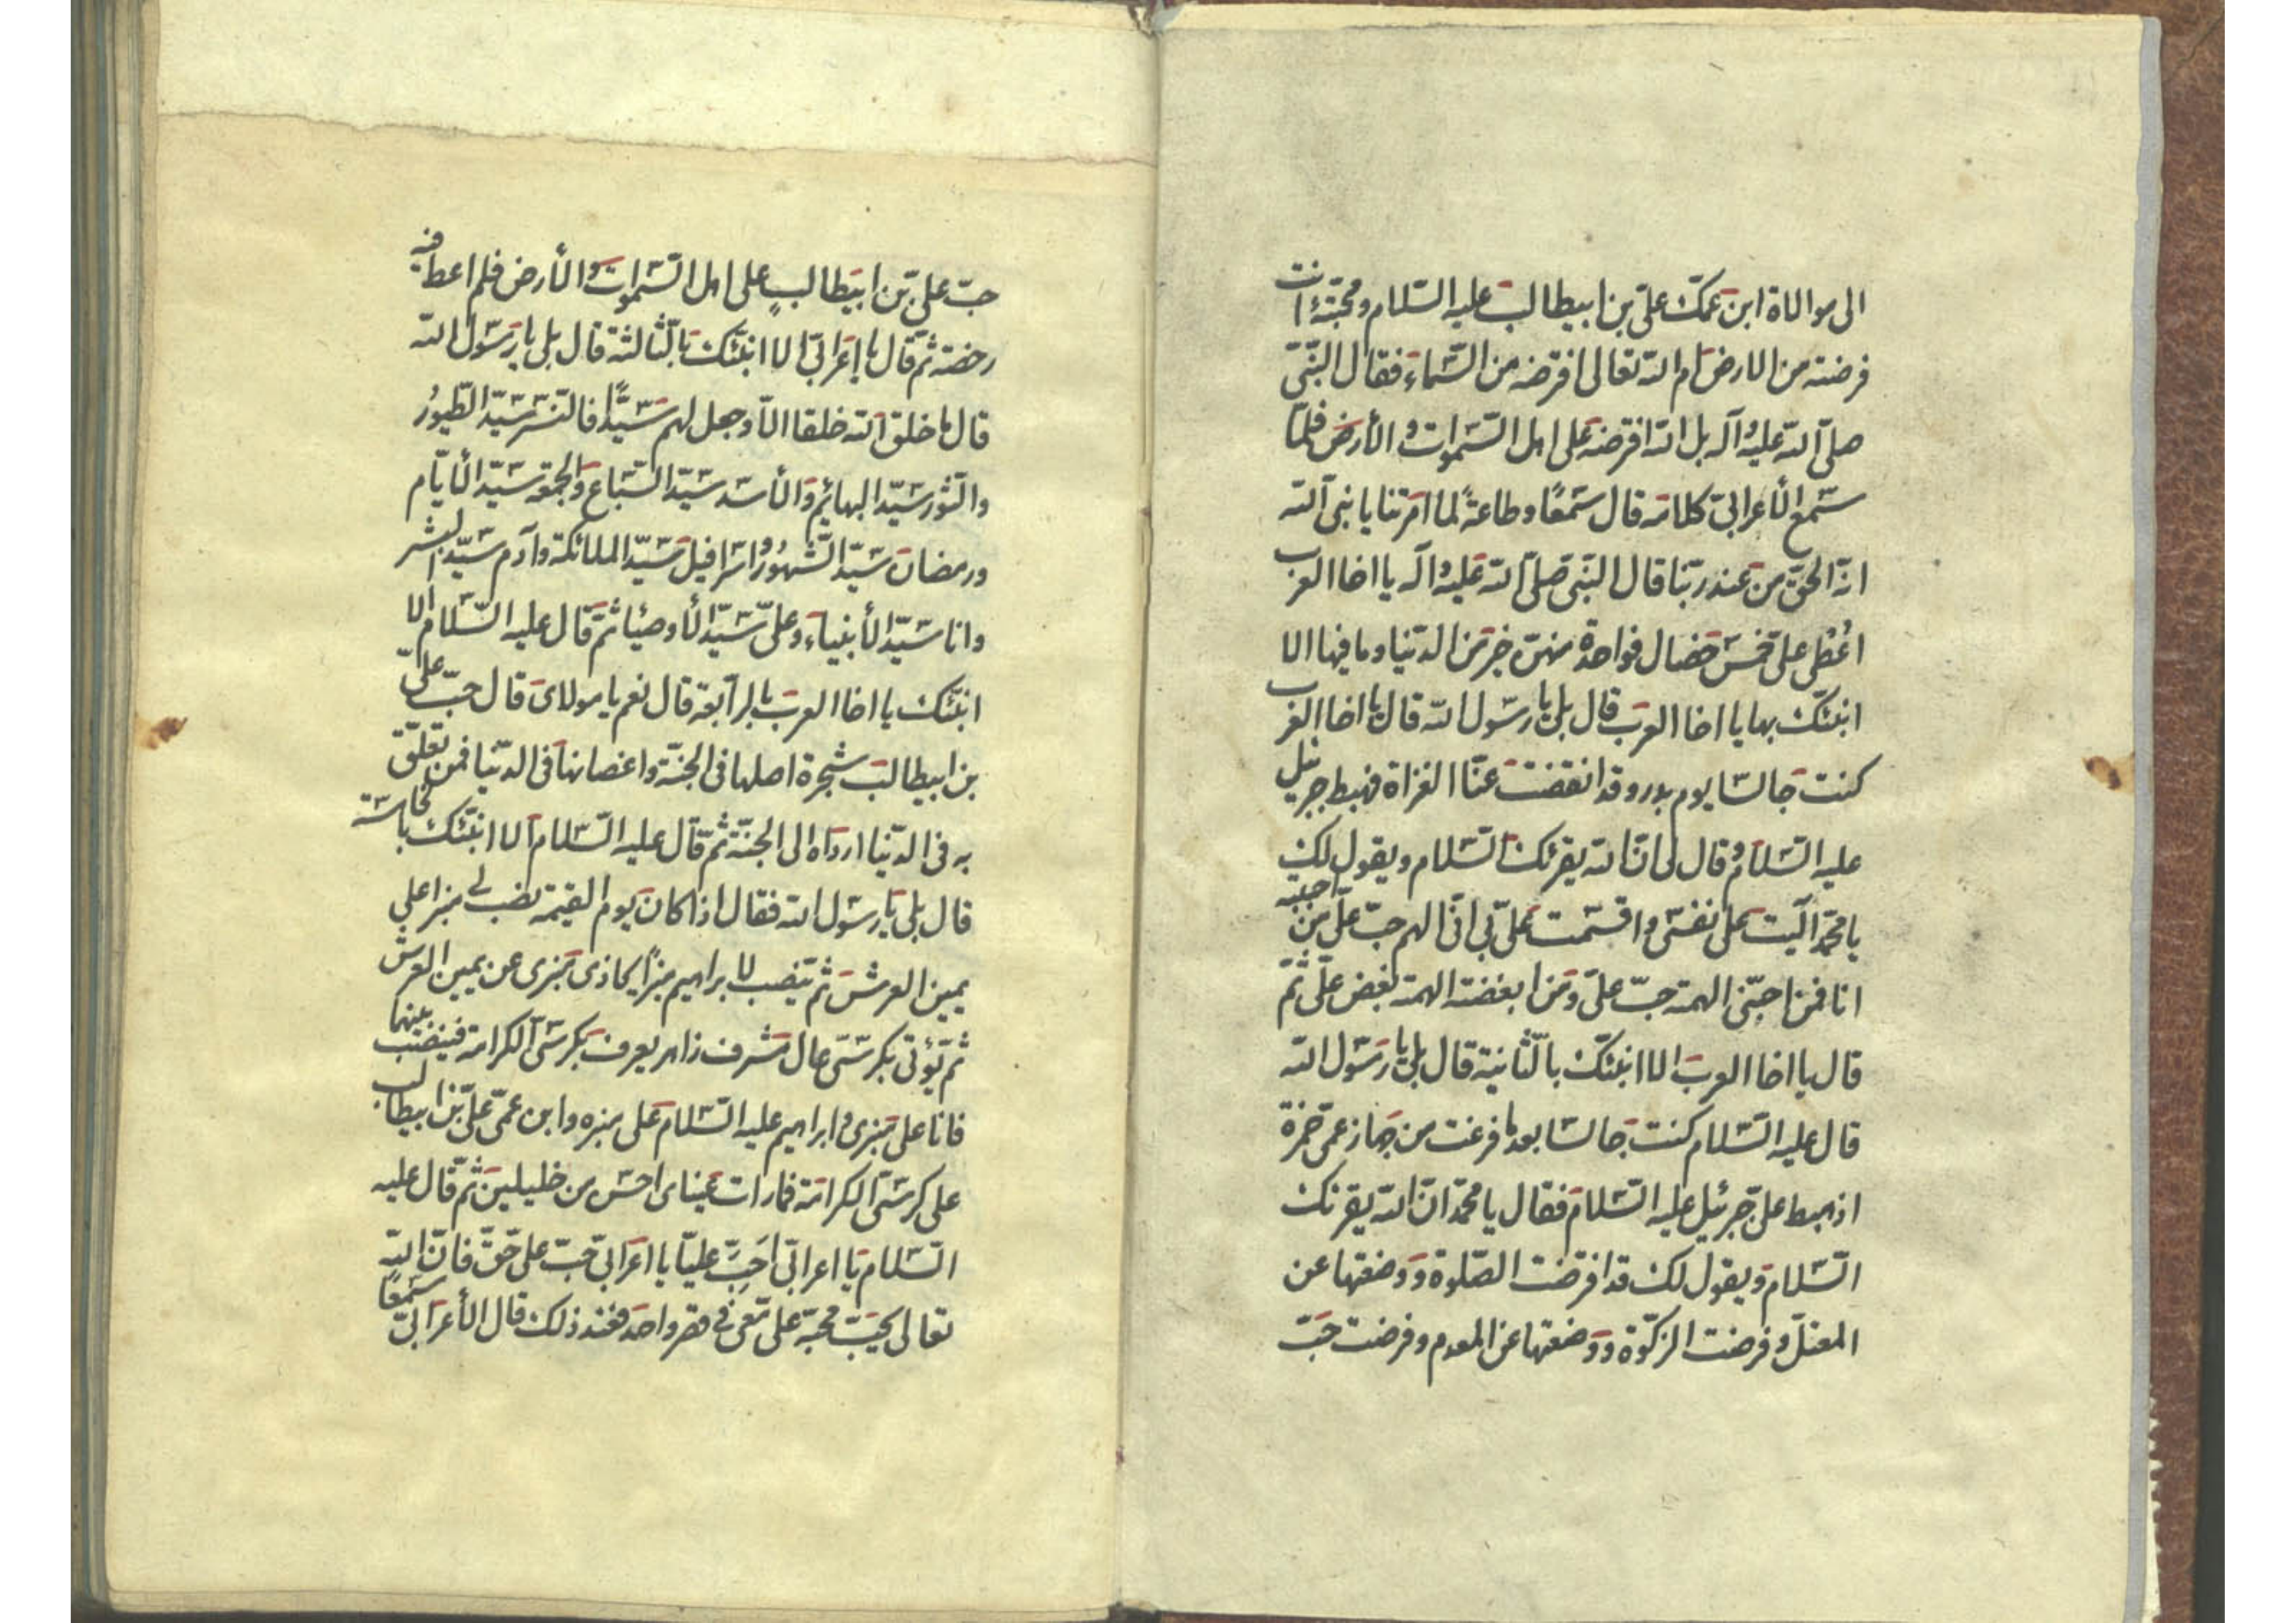 الى موالاة ابن عمك على بن ابيطالب عليه السلام ومحبته ءانت
فرضته من الارض ام الله تعالى افرضه من السماء فقال النبى
صلى الله عليه وآله بل الله افرضه على اهل السموات والأرض فلما
سمع الأعرابى كلامه قال سمعًا وطاعةً لما امرتنا يا نبى الله
انه الحق من عند ربنا قال النبى صلى الله عليه وآله يا اخا العرب
اعُطى على خمس خصال فواحدة منهن خير من الدنيا وما فيها الا
انبئك بها يا اخا العرب قال بلى يا رسول الله قال يا اخا العرب
كنت جالسا يوم بدر وقد انقضت عنا الغزاة فهبط جبرئيل
عليه السلام وقال لى ان الله يقرئك السلام ويقول لك
يا محمد آليت على نفسى واقسمت على بى انى الهم حب على من احببته
انا فمن احبنى الهمته حب على ومن ابغضته الهمته بغض على ثم
قال يا اخا العرب الا انبئك بالثانية قال بلى يا رسول الله
قال عليه السلام كنت جالسا بعد ما فرغت من جهاز عمى حمزة
اذ هبط على جبرئيل عليه السلام فقال يا محمد ان الله يقرئك
السلام ويقول لك قد افرضت الصلوة ووضعتها عن
المعتل وفرضت الزكوة ووضعتها عن المعدم وفرضت حب
حب على بن ابيطالبٍ على اهل السموات والأرض فلم اعط فيه
رخصة ثم قال يا إعرابى الا انبئك بالثالثة قال بلى يا رسول الله
قال ما خلق الله خلقا الا وجعل لهم سيدًا فالنسر سيد الطيورُ
والثور سيد البهائم والأسد سيد السباع والجمعة سيد الأيام
ورمضان سيد الشهور واسرافيل سيد الملائكة وآدم سيد البشر
وانا سيد الأنبياء وعلى سيد الأوصيا ثم قال عليه السلام الا
انبئك يا اخا العرب بالرابعة قال نعم يا مولاى قال حب على
بن ابيطالب شجرة اصلها فى الجنة واغصانها فى الدنيا فمن تعلق
به فى الدنيا ارداه الى الجنة ثم قال عليه السلام ألا انبئك بالخامسة
قال بلى يا رسول الله فقال اذا كان يوم القيمة نصب لى منبرا على
يمين العرش ثم ينصب لابراهيم منبرًا يحاذى منبرى عن يمين العرش
ثم يؤتى بكرسى عال مشرف زاهر يعرف بكرسى الكرامة فينصب بينهما
فانا على منبرى وابراهيم عليه السلام على منبره وابن عمى على بن ابيطالب
على كرسى الكرامة فما رات عيناى احسن من خليلين ثم قال عليه
السلام يا اعرابى احب عليا يا اعرابى حب على حق فان الله
تعالى يحب محبه على معى فى قصر واحد فعند ذلك قال الأعرابى سمعًا